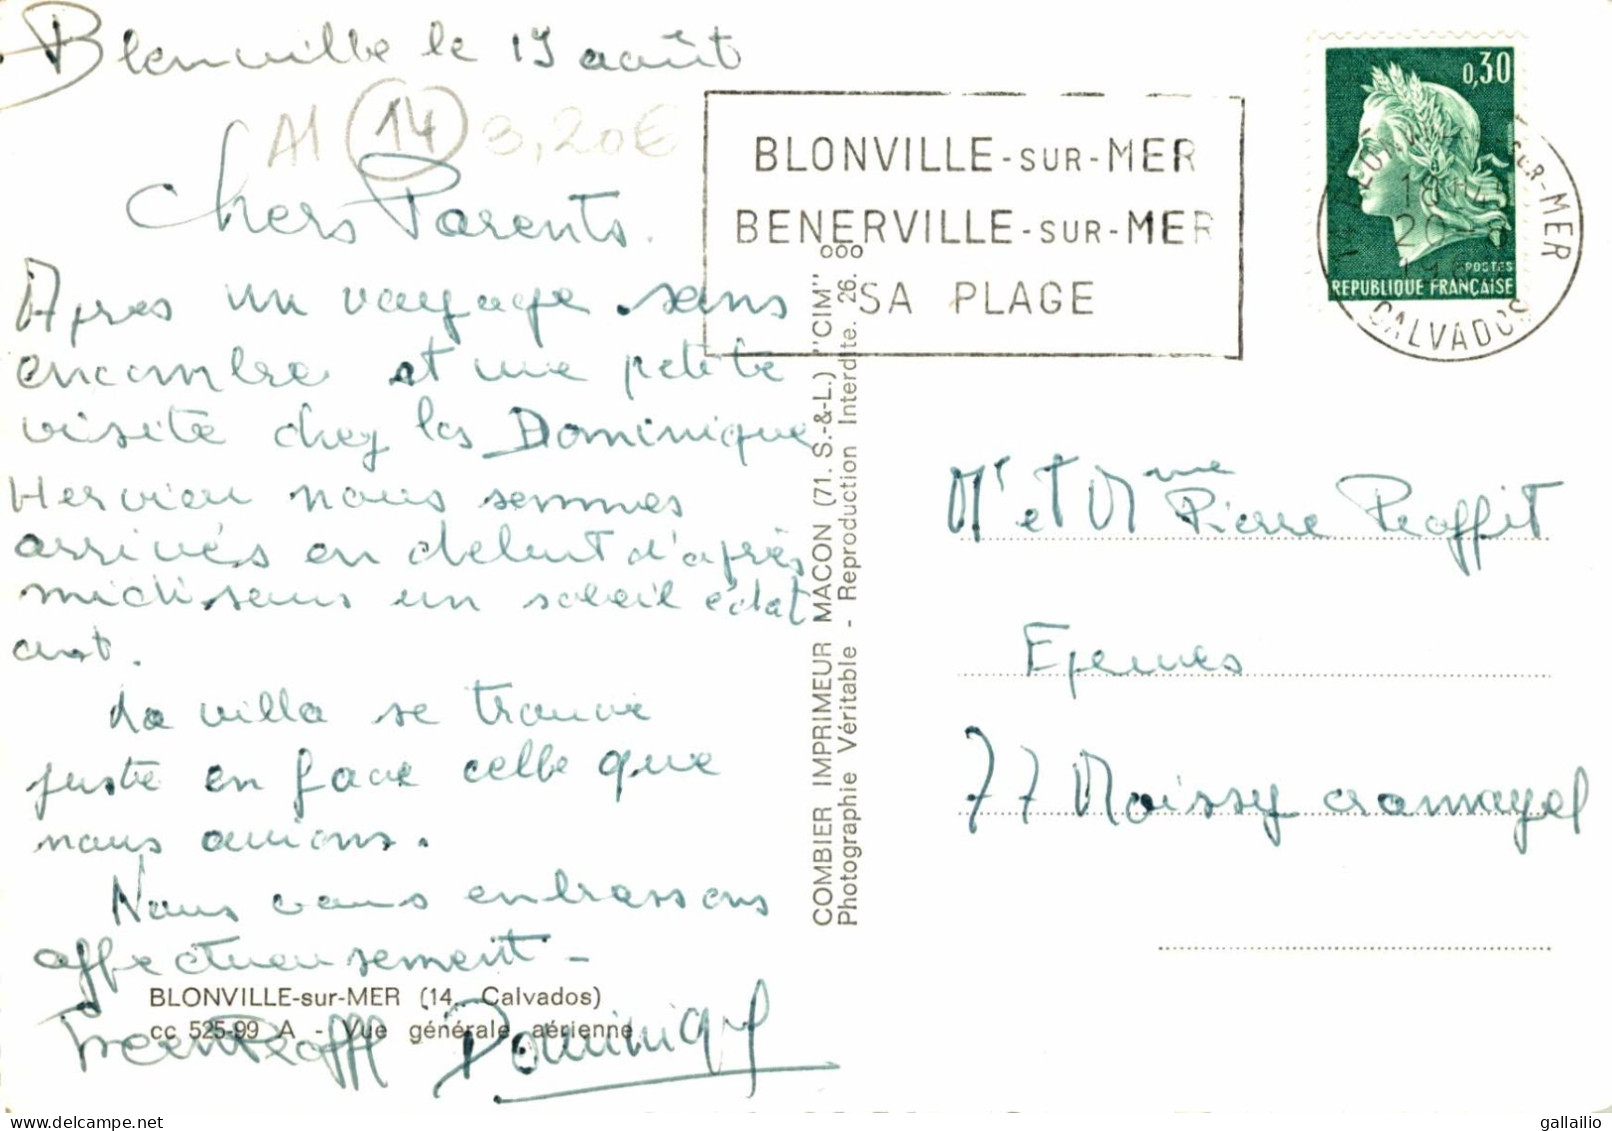 Blonville le 19 août
A1 14 3,20€
Chers Parents.
Après un voyage sans
encombre et une petite
visite chez les Dominique
Hervieu nous sommes
arrivés en début d'après
midi sous un soleil éclat
ant.
La villa se trouve
juste en face celle que
nous avions.
Nous vous embrassons
affectueusement -
Dominique
BLONVILLE-sur-MER (14. Calvados)
cc 525-99 A - Vue générale aérienne
COMBIER IMPRIMEUR MACON (71. S.-&-L.) "CIM"
Photographie Véritable - Reproduction Interdite. 26.
BLONVILLE-SUR-MER
BENERVILLE-SUR-MER
SA PLAGE
0,30
POSTES
REPUBLIQUE FRANÇAISE
SUR-MER
20-8
CALVADOS
Mr et Mme Pierre Proffit
Eprunes
77 Moissy cramayel
gallailio